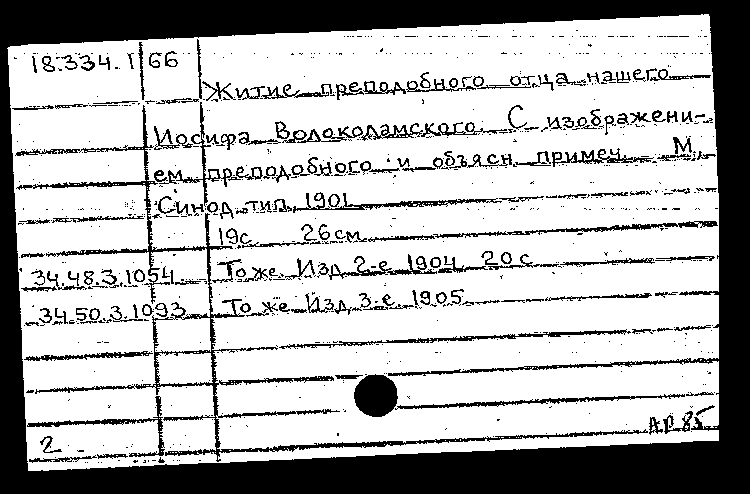 18.334.1 66
Житие преподобного отца нашего
Иосифа Волоколамского. С изображени-
ем преподобного и объясн. примеч. М.,
Синод. тип., 1901
19с 26см
34.48.3.1054 То же. Изд. 2-е. 1904. 20с
34.50.3.1093 То же. Изд. 3-е. 1905.
2 АР 85